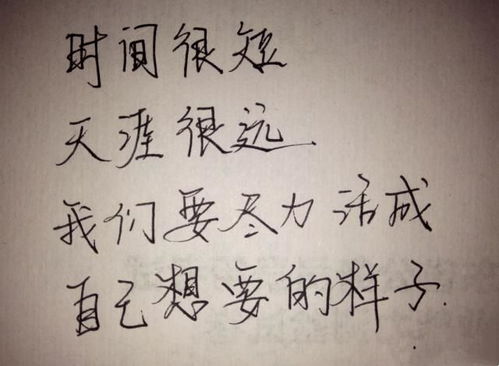 时间很短
天涯很远.
我们要尽力活成
自己想要的样子.